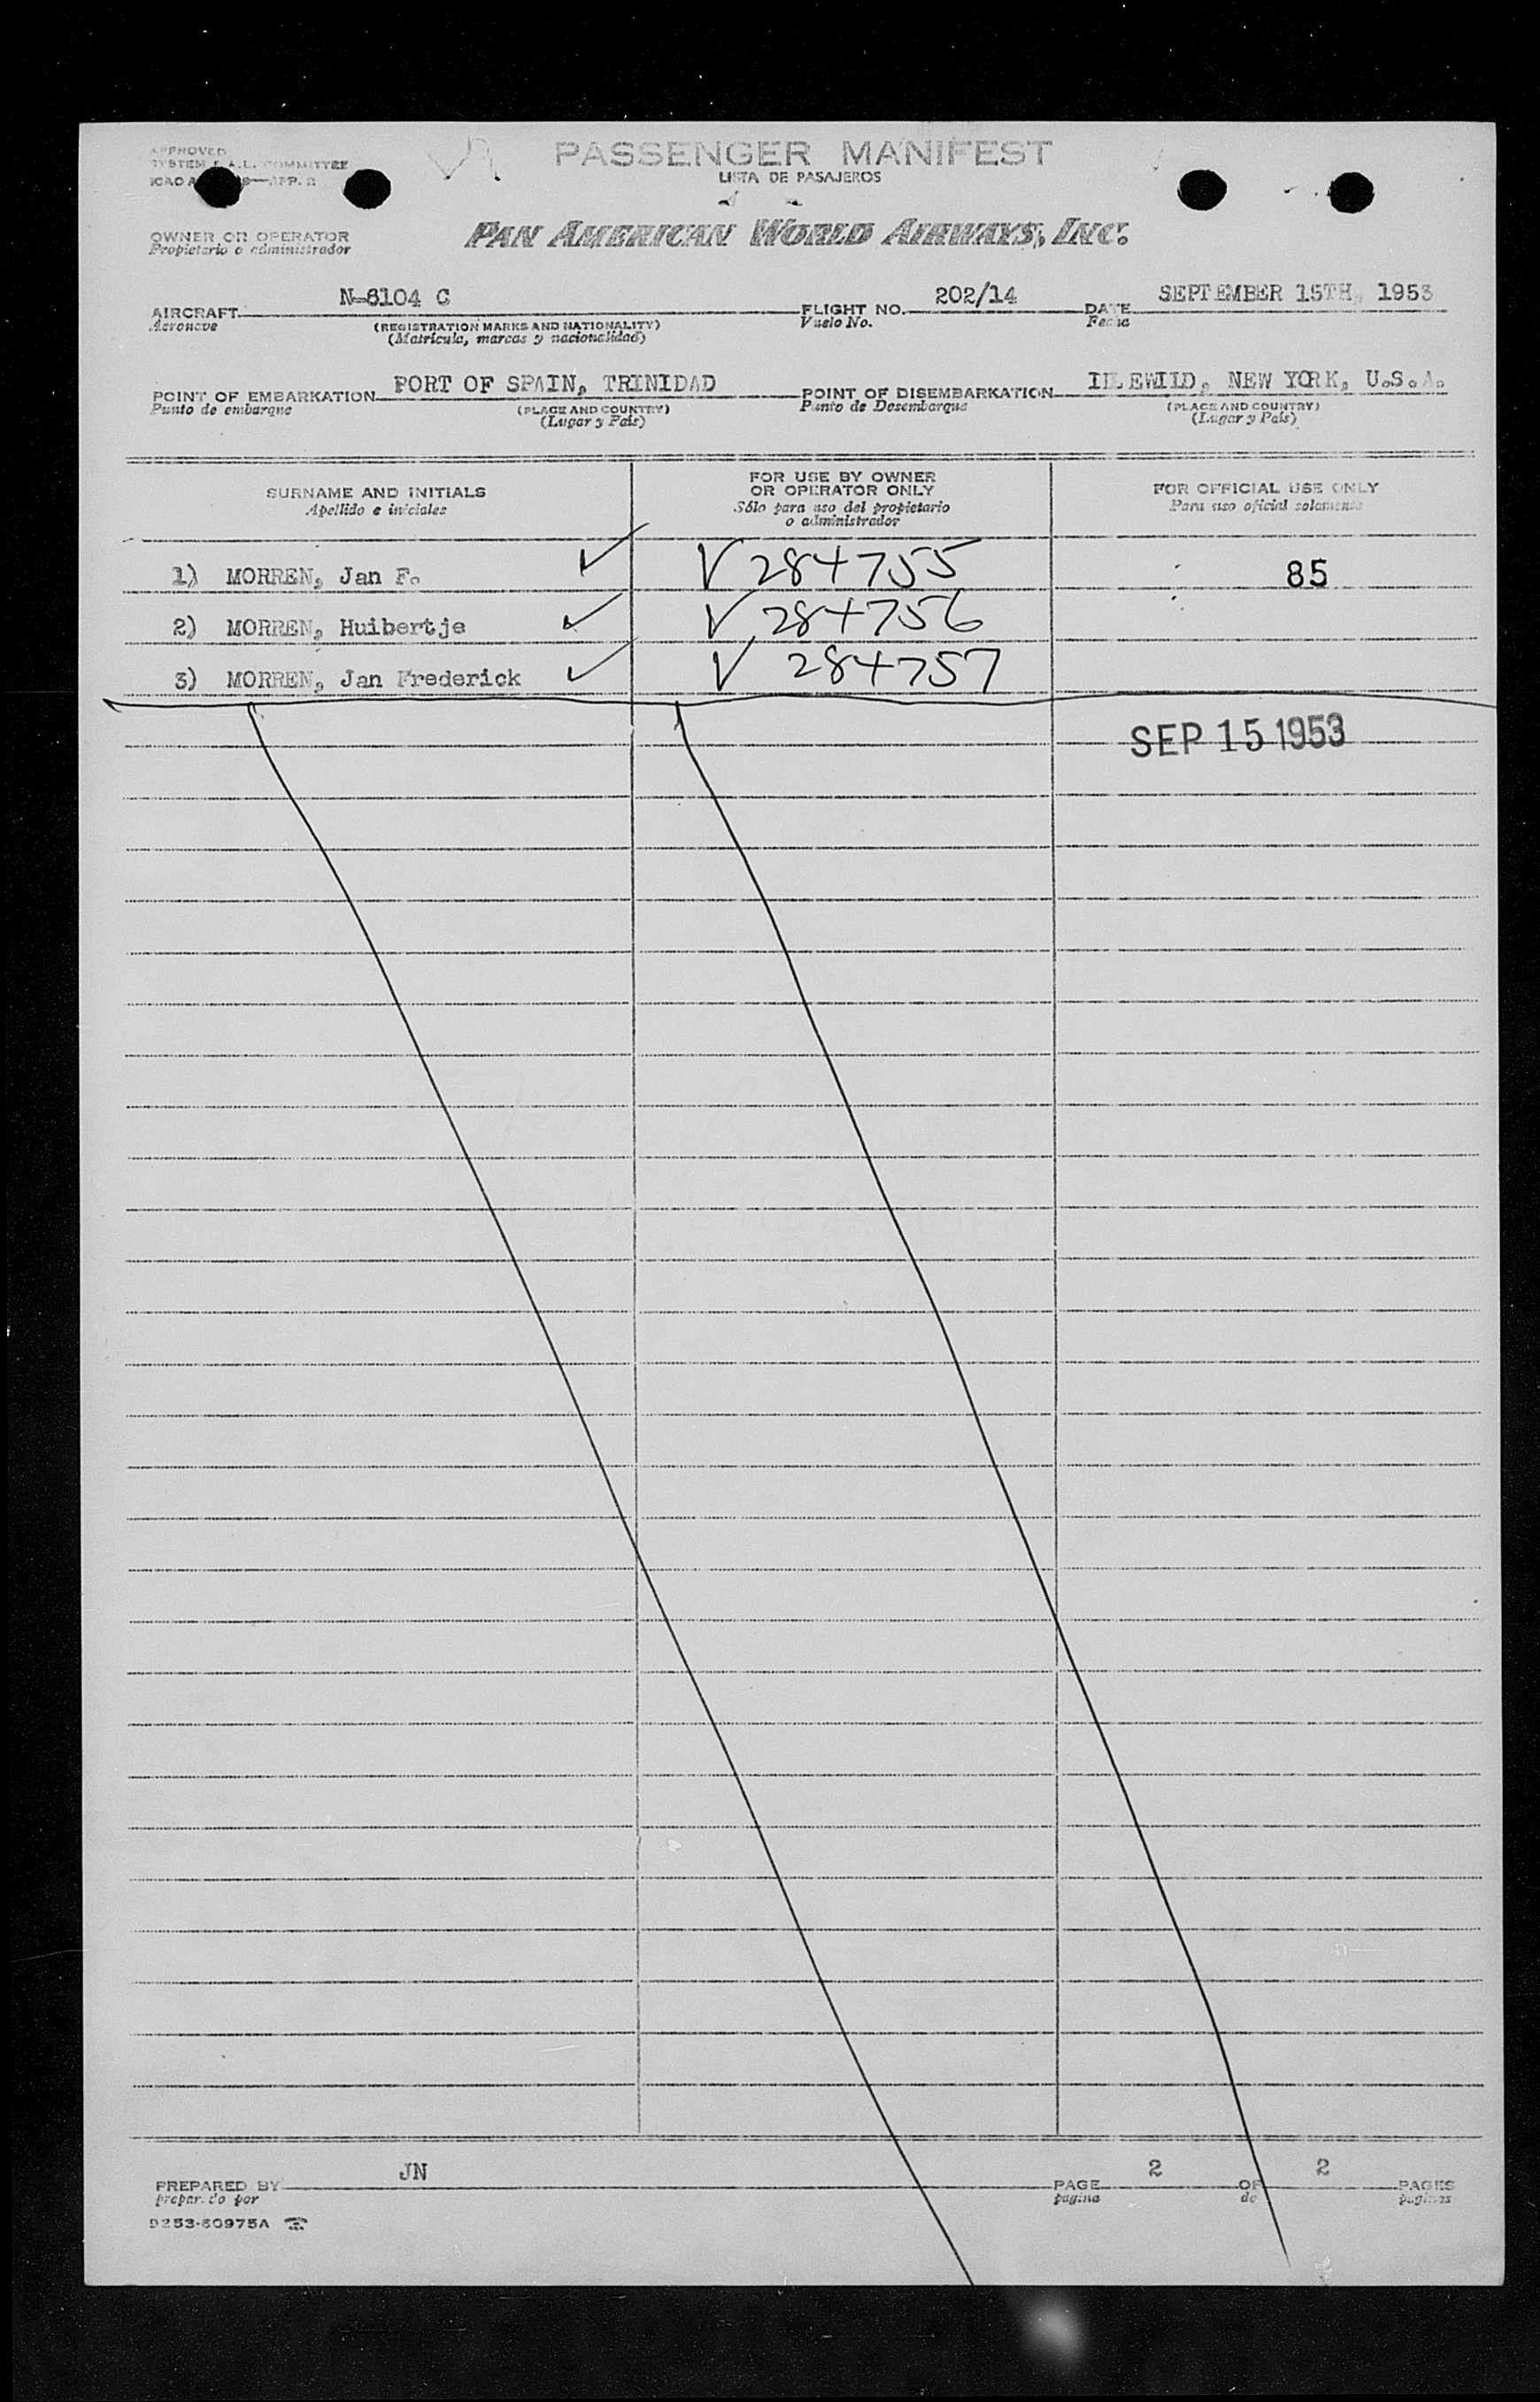 APPROVED
SYSTEM F.A.L. COMMITTEE
ICAO A 9—APP. 2
PASSENGER MANIFEST
LISTA DE PASAJEROS
OWNER OR OPERATOR
Propietario o administrador
PAN AMERICAN WORLD AIRWAYS, INC.
AIRCRAFT N-8104 C FLIGHT NO. 202/14 DATE SEPTEMBER 15TH, 1953
Aeronave (REGISTRATION MARKS AND NATIONALITY) Vuelo No. Fecha
(Matricula, marcas y nacionalidad)
POINT OF EMBARKATION PORT OF SPAIN, TRINIDAD POINT OF DISEMBARKATION IDLEWILD, NEW YORK, U.S.A.
Punto de embarque (PLACE AND COUNTRY) Punto de Desembarque (PLACE AND COUNTRY)
(Lugar y País) (Lugar y País)
SURNAME AND INITIALS
Apellido e iniciales
FOR USE BY OWNER
OR OPERATOR ONLY
Sólo para uso del propietario
o administrador
FOR OFFICIAL USE ONLY
Para uso oficial solamente
1) MORREN, Jan F. ✓ V 284755 85
2) MORREN, Huibertje ✓ V 284756
3) MORREN, Jan Frederick ✓ V 284757
SEP 15 1953
PREPARED BY JN PAGE 2 OF 2 PAGES
preparado por pagina de paginas
9253-60975A